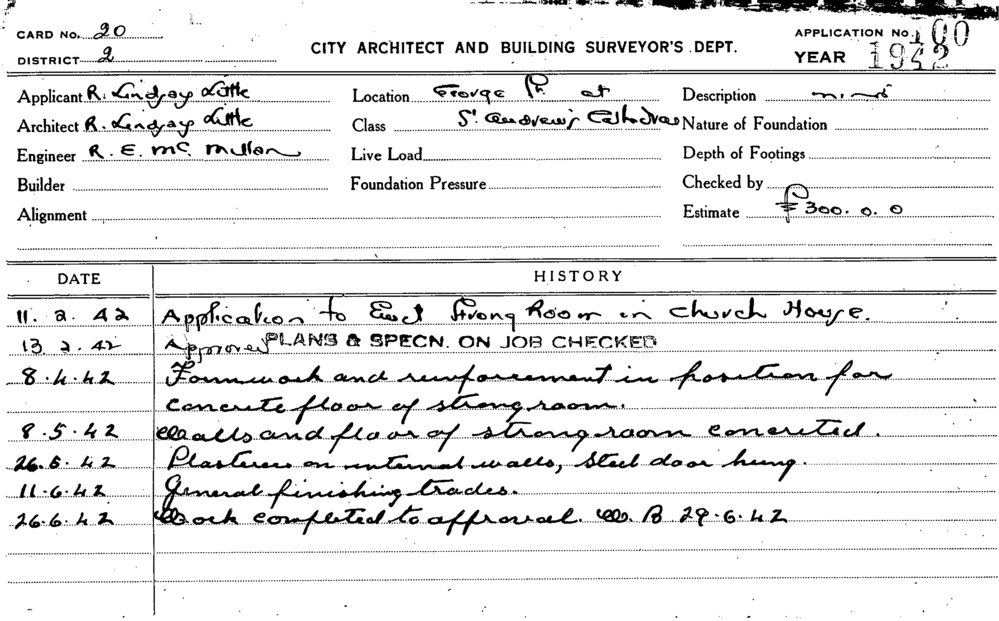 CARD No. 20
DISTRICT 2
CITY ARCHITECT AND BUILDING SURVEYOR'S DEPT.
APPLICATION No. 100
YEAR 1942
Applicant R. Lindsay Little
Location George St. at
Description
Architect R. Lindsay Little
Class St Andrew's Cathedral
Nature of Foundation
Engineer R. E. Mc. Mullan
Live Load
Depth of Footings
Builder
Foundation Pressure
Checked by
Alignment
Estimate £300. 0. 0
DATE HISTORY
11. 2. 42 Application to Erect Strong Room in Church House.
13 2. 42 Approved PLANS & SPECN. ON JOB CHECKED
8.4.42 Formwork and reinforcement in position for
concrete floor of strong room.
8.5.42 Walls and floor of strong room concreted.
26.5.42 Plasterers on internal walls, Steel door hung.
11.6.42 General finishing trades.
26.6.42 Work completed to approval. W. B 29.6.42